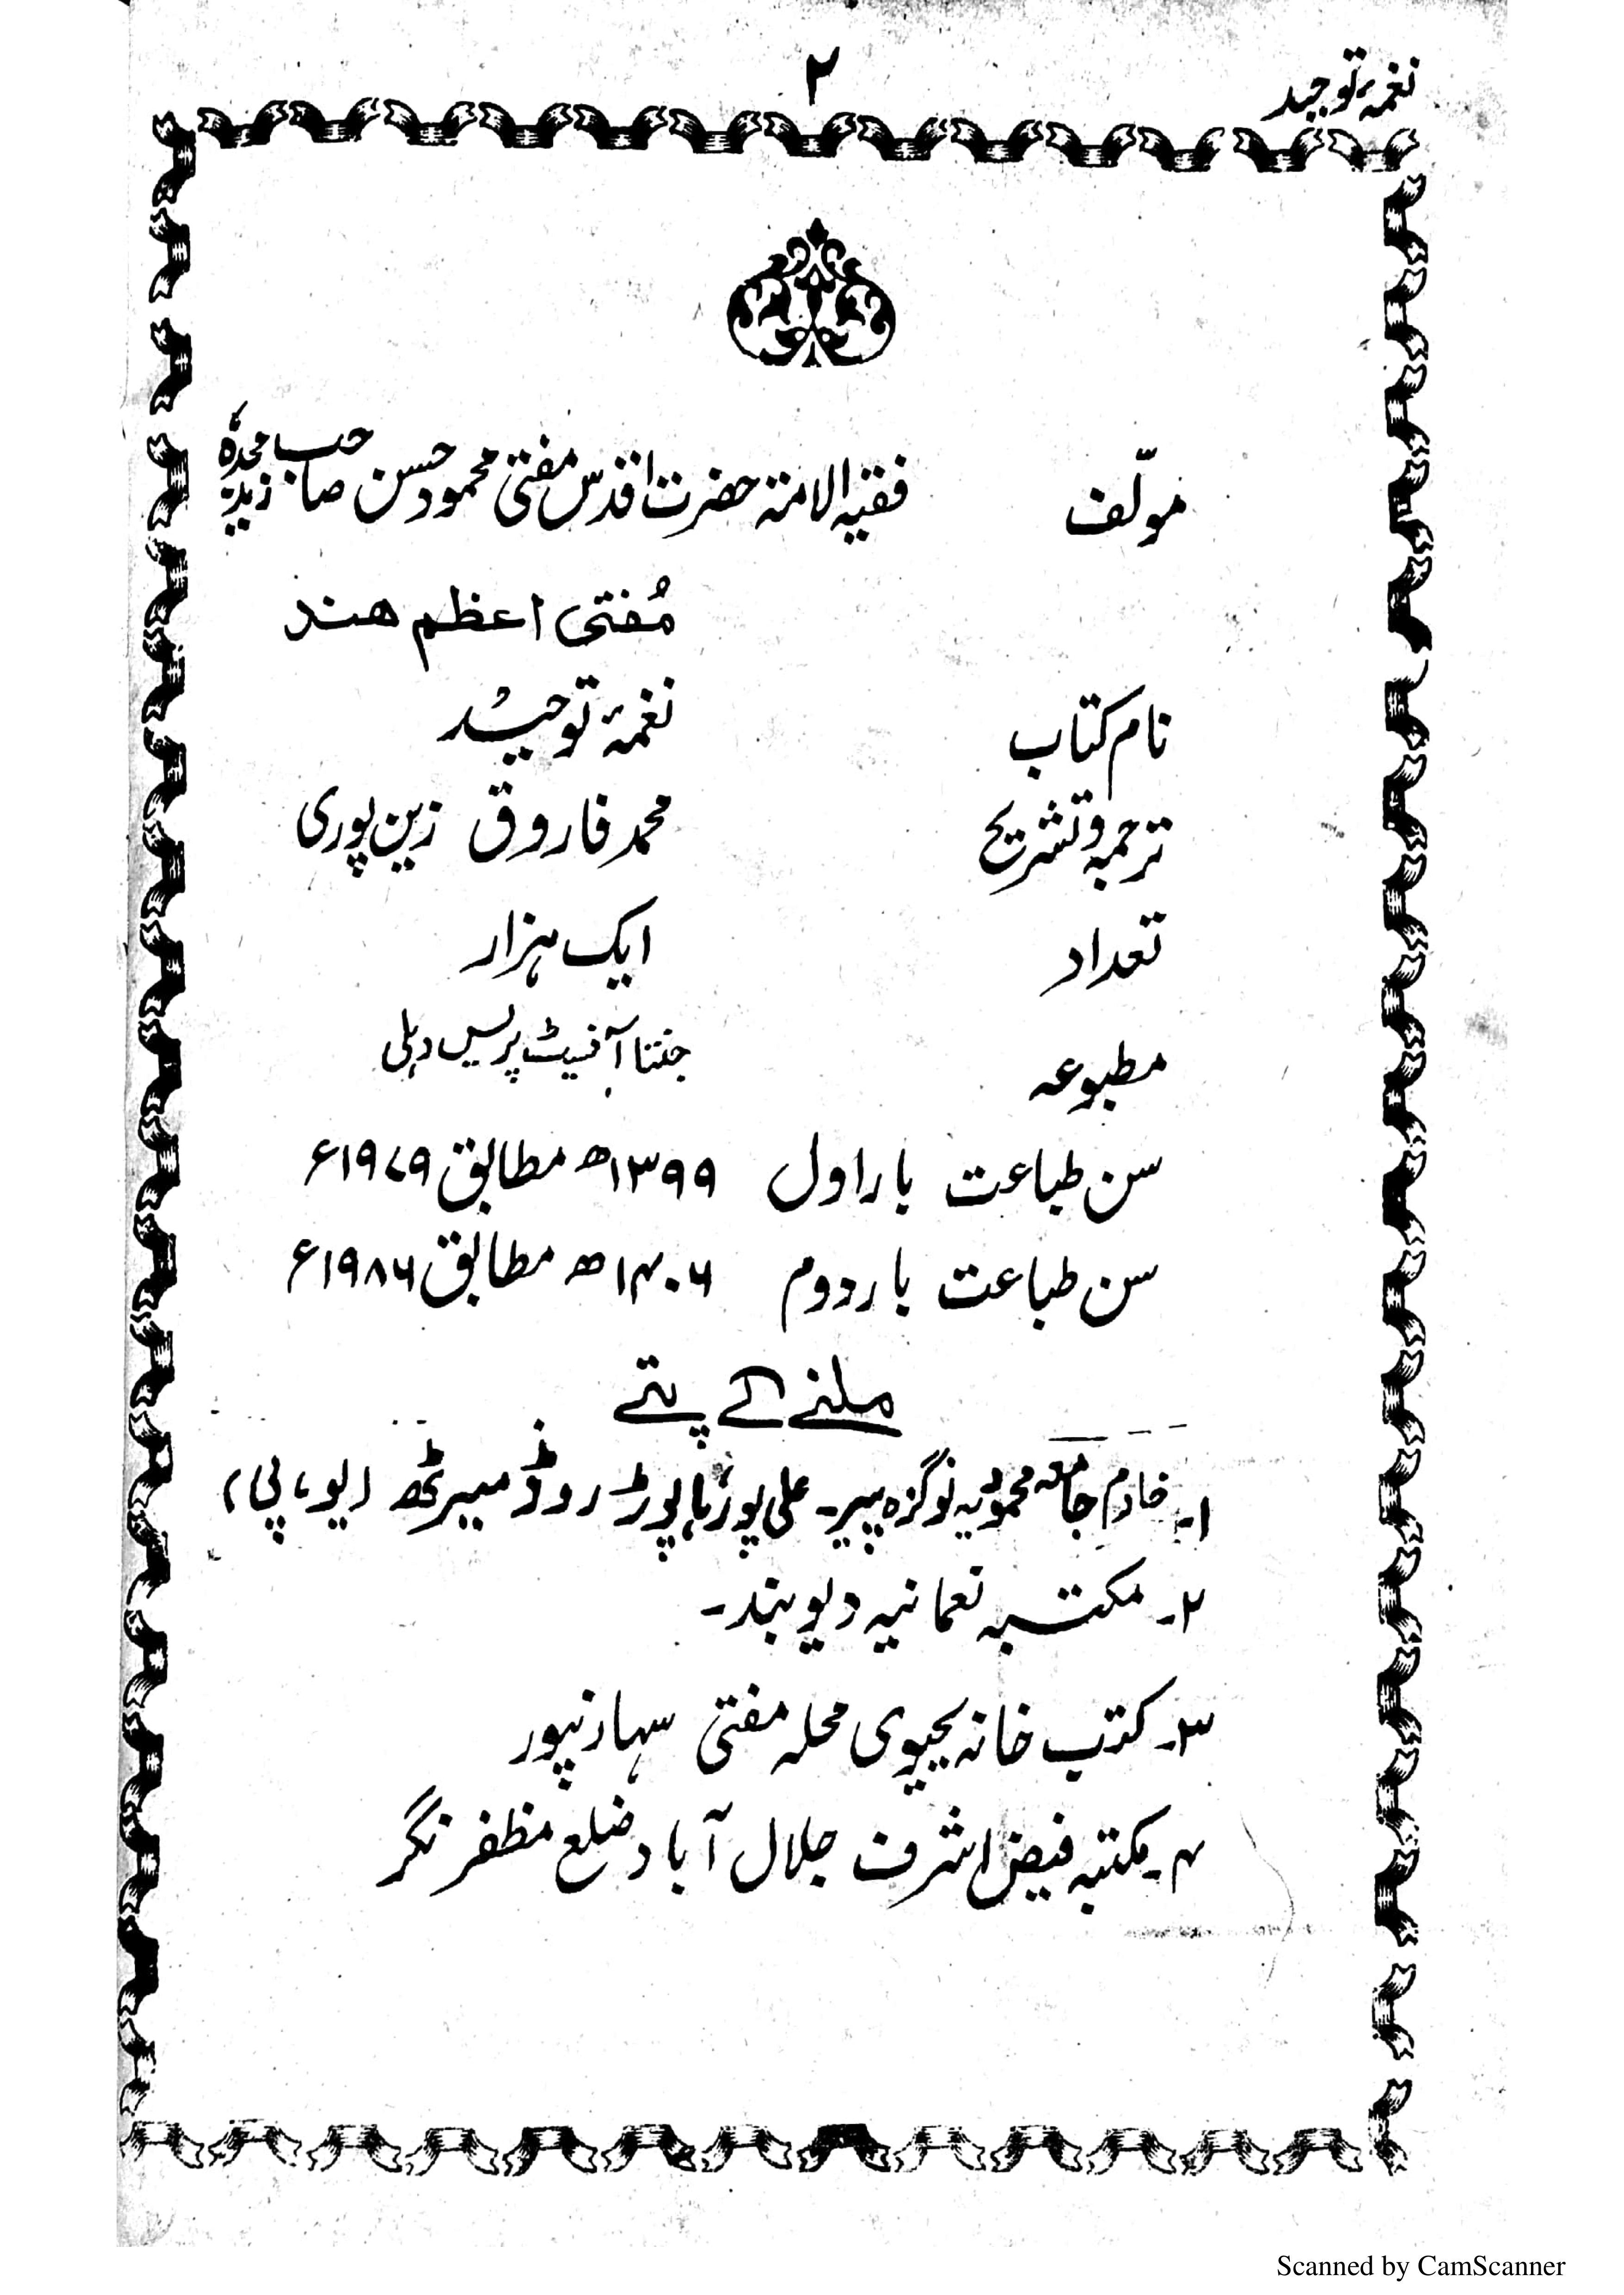 نغمۂ توحید
۲
مولّف فقیہ الامۃ حضرت اقدس مفتی محمود حسن صاحب زید مجدہٗ
مُفتی اعظم ھند
نام کتاب نغمۂ توحید
ترجمہ و تشریح محمد فاروق زین پوری
تعداد ایک ہزار
مطبوعہ جنتا آفسیٹ پریس دہلی
سن طباعت بار اول ۱۳۹۹ھ مطابق ۱۹۷۹ء
سن طباعت بار دوم ۱۴۰۶ھ مطابق ۱۹۸۶ء
ملنے کے پتے
۱۔ خادم جامعہ محمودیہ نوگزہ پیر۔ علی پور، ہاپوڑ روڈ میرٹھ (یو، پی)
۲۔ مکتبہ نعمانیہ دیوبند۔
۳۔ کتب خانہ یحیوی محلہ مفتی سہارنپور
۴۔ مکتبہ فیض اشرف جلال آباد ضلع مظفر نگر
Scanned by CamScanner